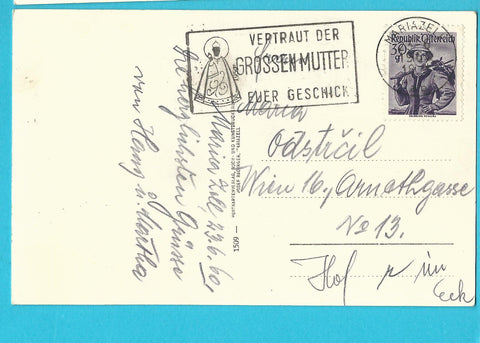 VERTRAUT DER
GROSSEN MUTTER
EUER GESCHICK
MARIAZELL
Republik Österreich
30g
Maria Zell, 23.6.60
Die herzlichsten Grüsse
von Hans u. Martha
1509 —
Maria
Odstrčil
Wien 16, Arnethgasse
No 13.
Hof r im
Eck